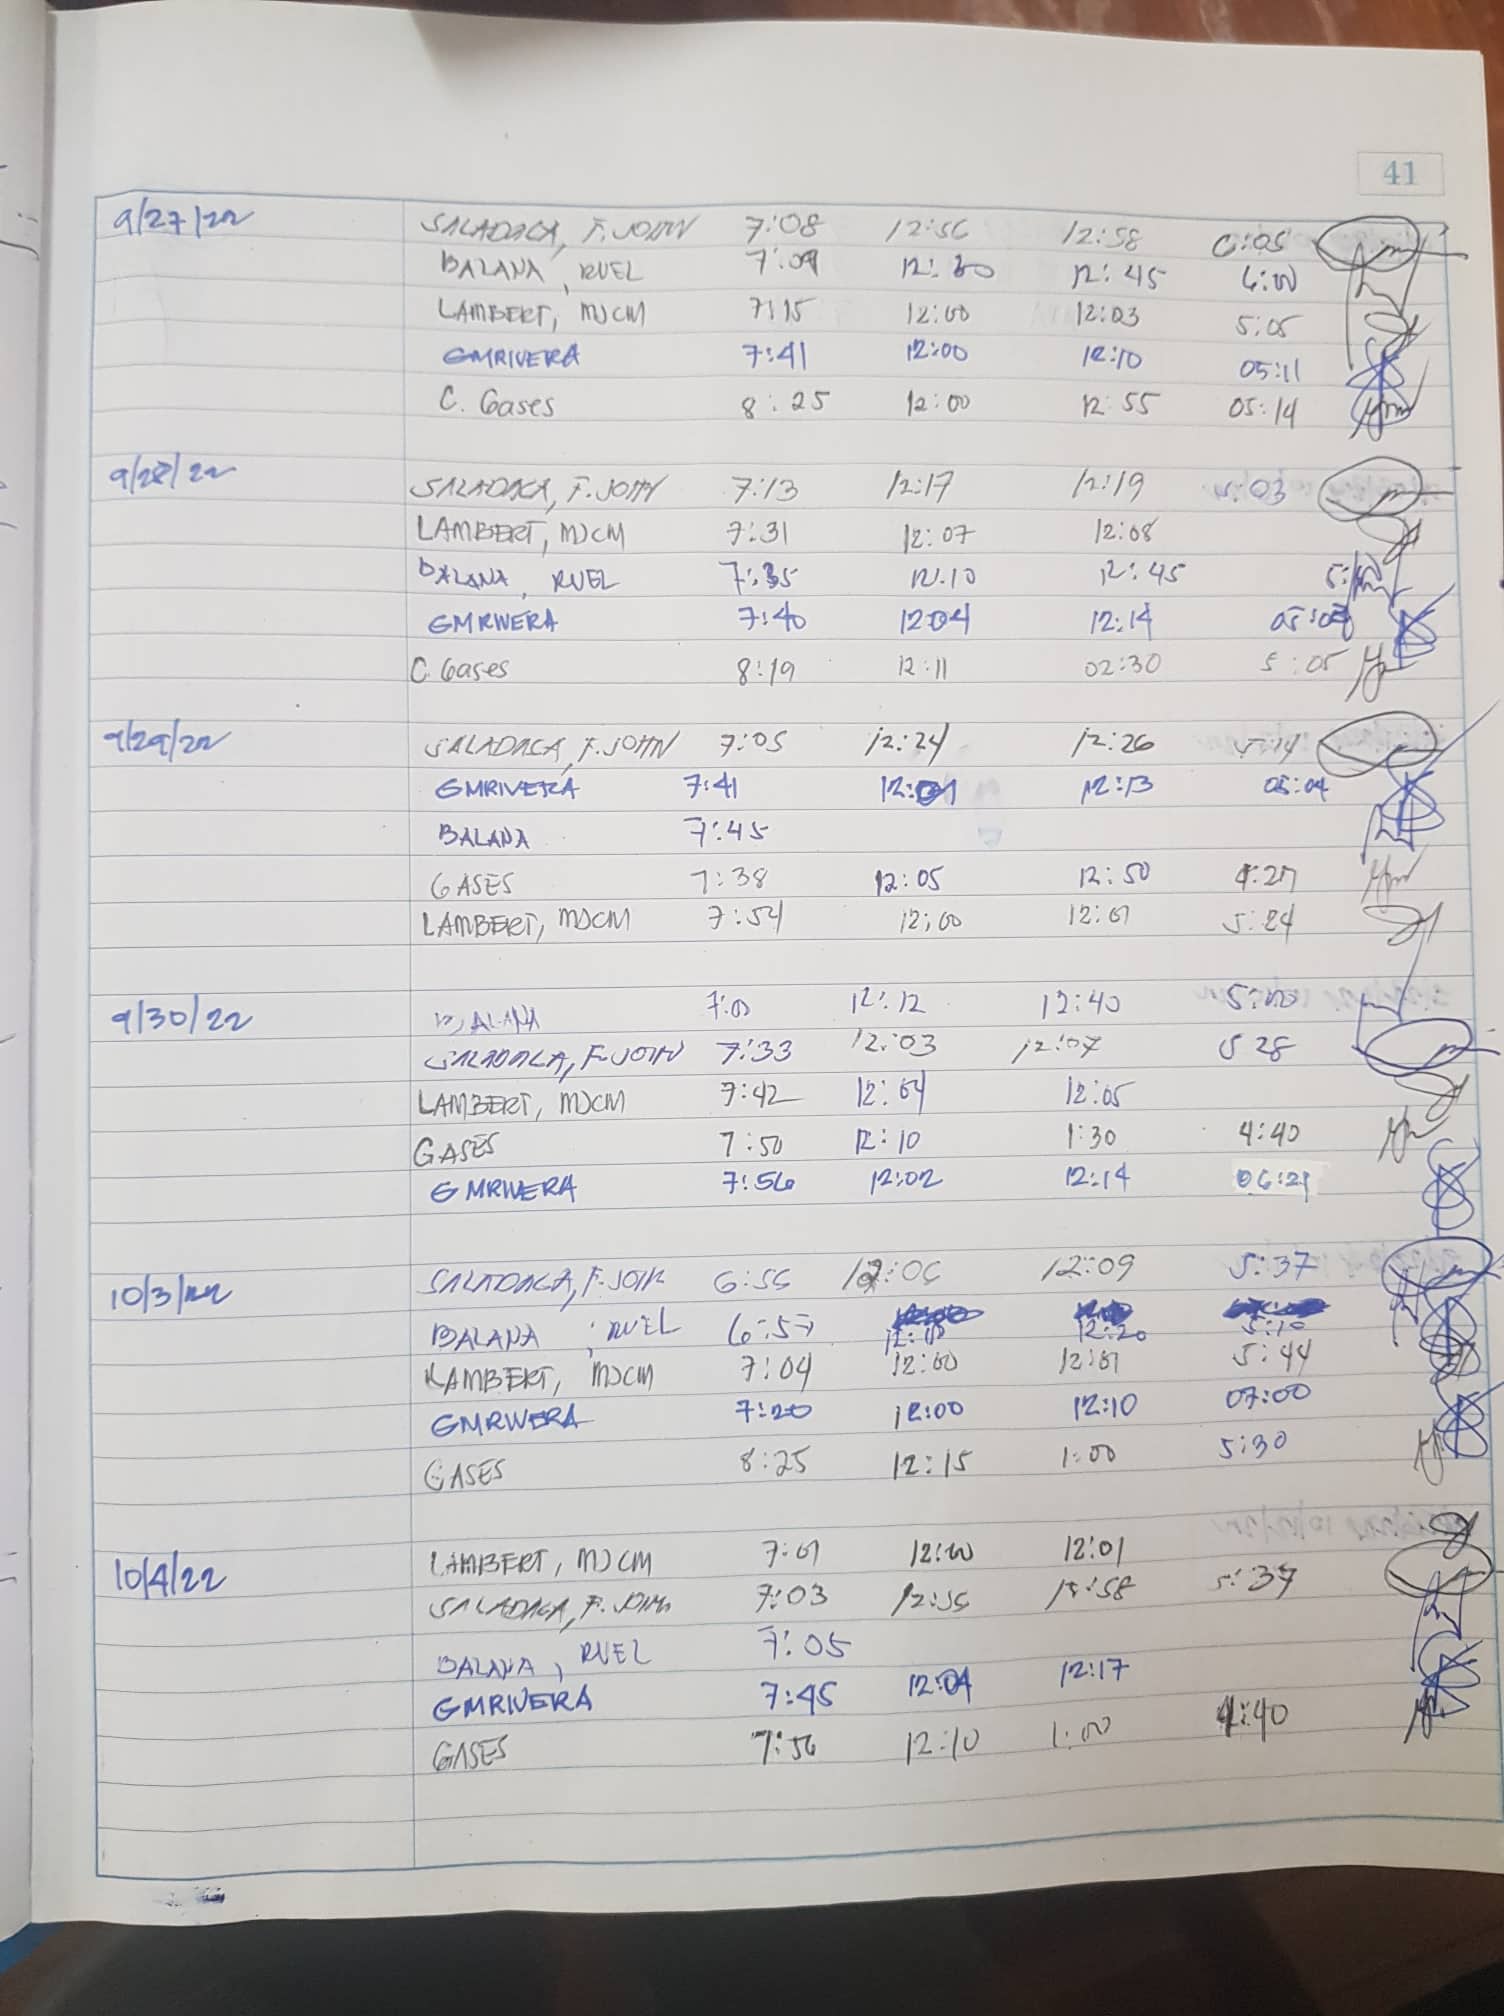 41
9/27/22 SALADAGA, F. JOHN 7:08 12:56 12:58 6:05
BALANA, RUEL 7:09 12:30 12:45 6:00
LAMBERT, MJCM 7:15 12:00 12:03 5:05
GMRIVERA 7:41 12:00 12:10 05:11
C. Gases 8:25 12:00 12:55 05:14
9/28/22 SALADAGA, F. JOHN 7:13 12:17 12:19 5:03
LAMBERT, MJCM 7:31 12:07 12:08
BALANA, RUEL 7:35 12:10 12:45
GMRIVERA 7:40 12:04 12:14
C. Gases 8:19 12:11 02:30 5:05
9/29/22 SALADAGA, F. JOHN 7:05 12:24 12:26 5:14
GMRIVERA 7:41 12:01 12:13 05:04
BALANA 7:45
GASES 7:38 12:05 12:50 4:27
LAMBERT, MJCM 7:54 12:00 12:01 5:24
9/30/22 BALANA 7:00 12:12 12:40 5:00
SALADAGA, F. JOHN 7:33 12:03 12:07 5 28
LAMBERT, MJCM 7:42 12:04 12:05
GASES 7:50 12:10 1:30 4:40
GMRIVERA 7:56 12:02 12:14 06:21
10/3/22 SALADAGA, F. JOHN 6:56 12:06 12:09 5:37
BALANA, RUEL 6:57 12:20 5:10
LAMBERT, MJCM 7:04 12:00 12:01 5:44
GMRIVERA 7:20 12:00 12:10 07:00
GASES 8:25 12:15 1:00 5:30
10/4/22 LAMBERT, MJCM 7:01 12:00 12:01
SALADAGA, F. JOHN 7:03 12:56 12:58 5:37
BALANA, RUEL 7:05
GMRIVERA 7:45 12:04 12:17
GASES 7:56 12:10 1:00 4:40